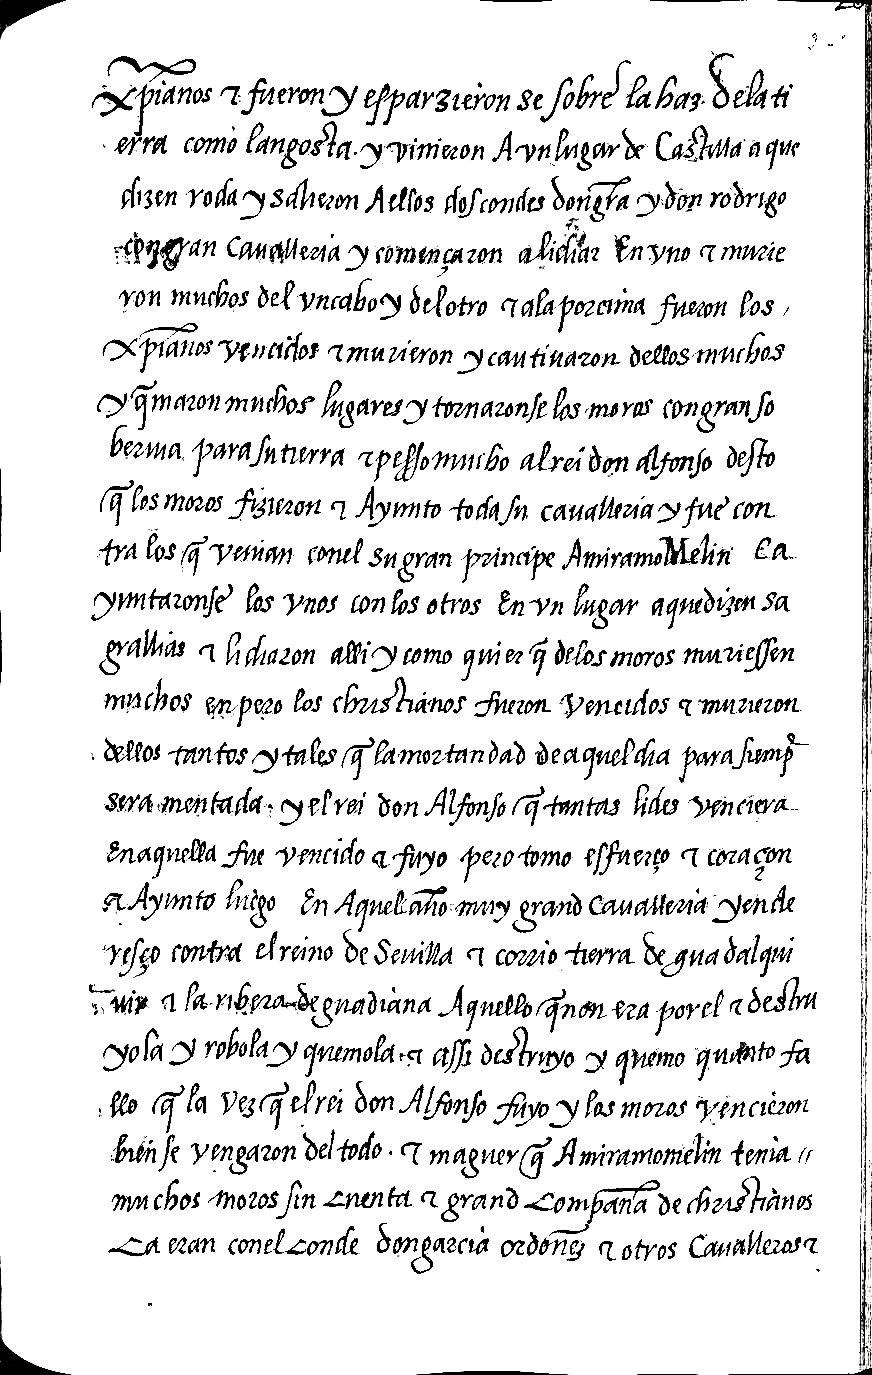 Xpianos τ fueron y esparzieron se sobre la haz de la ti
erra como langosta. y vinieron A vn lugar de Castilla a que
dizen roda y salieron A ellos dos condes don gra y don rodrigo
con gran Cavalleria y començaron a lidiar En vno τ murie
ron muchos del vn cabo y del otro τ ala porcima fueron los
Xpianos vencidos τ murieron y cautiuaron dellos muchos
y q̃maron muchos lugares y tornaron se los moros con gran so
beruia para su tierra τ pesso mucho al rei don alfonso desto
q̃ los moros fizieron τ Ayunto toda su caualleria y fue con
tra los q̃ venian con el su gran principe AmiramoMelin Ca
yuntaronse los vnos con los otros En vn lugar a que dizen sa
grallias τ lidiaron alli y como quier q̃ de los moros muriessen
muchos en pero los christianos fueron vencidos τ murieron
dellos tantos y tales q̃ la mortandad de aquel dia para siemp̃
sera mentada. y el rei don Alfonso q̃ tantas lides venciera
En aquella fue vencido τ fuyo pero tomo esfuerço τ coraçon
τ Ayunto luego En Aquel año muy grand Caualleria y ende
resço contra el reino de Seuilla τ corrio tierra de guadalqui
uir τ la ribera de guadiana Aquello q̃ non era por el τ destru
yola y robola y quemola. τ assi destruyo y quemo quanto fa
llo q̃ la vez q̃ el rei don Alfonso fuyo y los moros vencieron
bien se vengaron del todo. τ maguer q̃ Amiramomelin tenia
muchos moros sin cuenta τ grand compaña de christianos
Ca eran con el conde don garcia ordoñez τ otros Caualleros τ